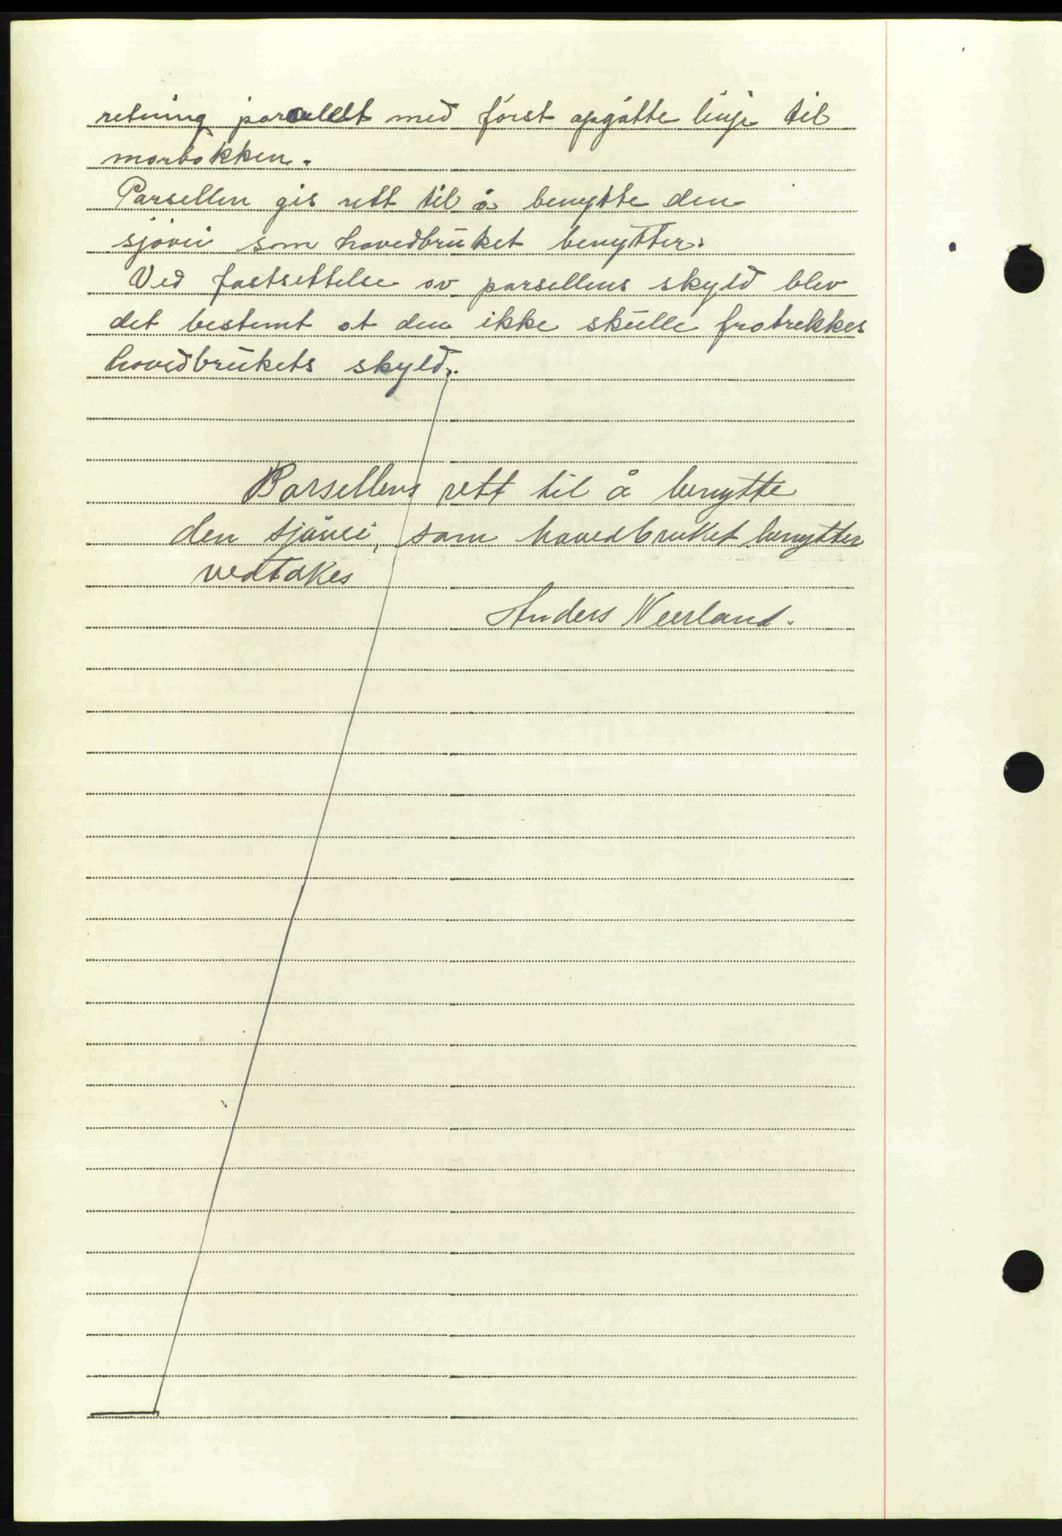 retning parallelt med först opgåtte linje til
marbakken.
Parsellen gis rett til å benytte den
sjövei som hovedbruket benytter.
Ved fastsettelse av parsellens skyld blev
det bestemt at den ikke skulle fratrekkes
hovedbrukets skyld.
Parsellens rett til å benytte
den sjövei, som hovedbruket benytter
vedtakes
Anders Neerland.